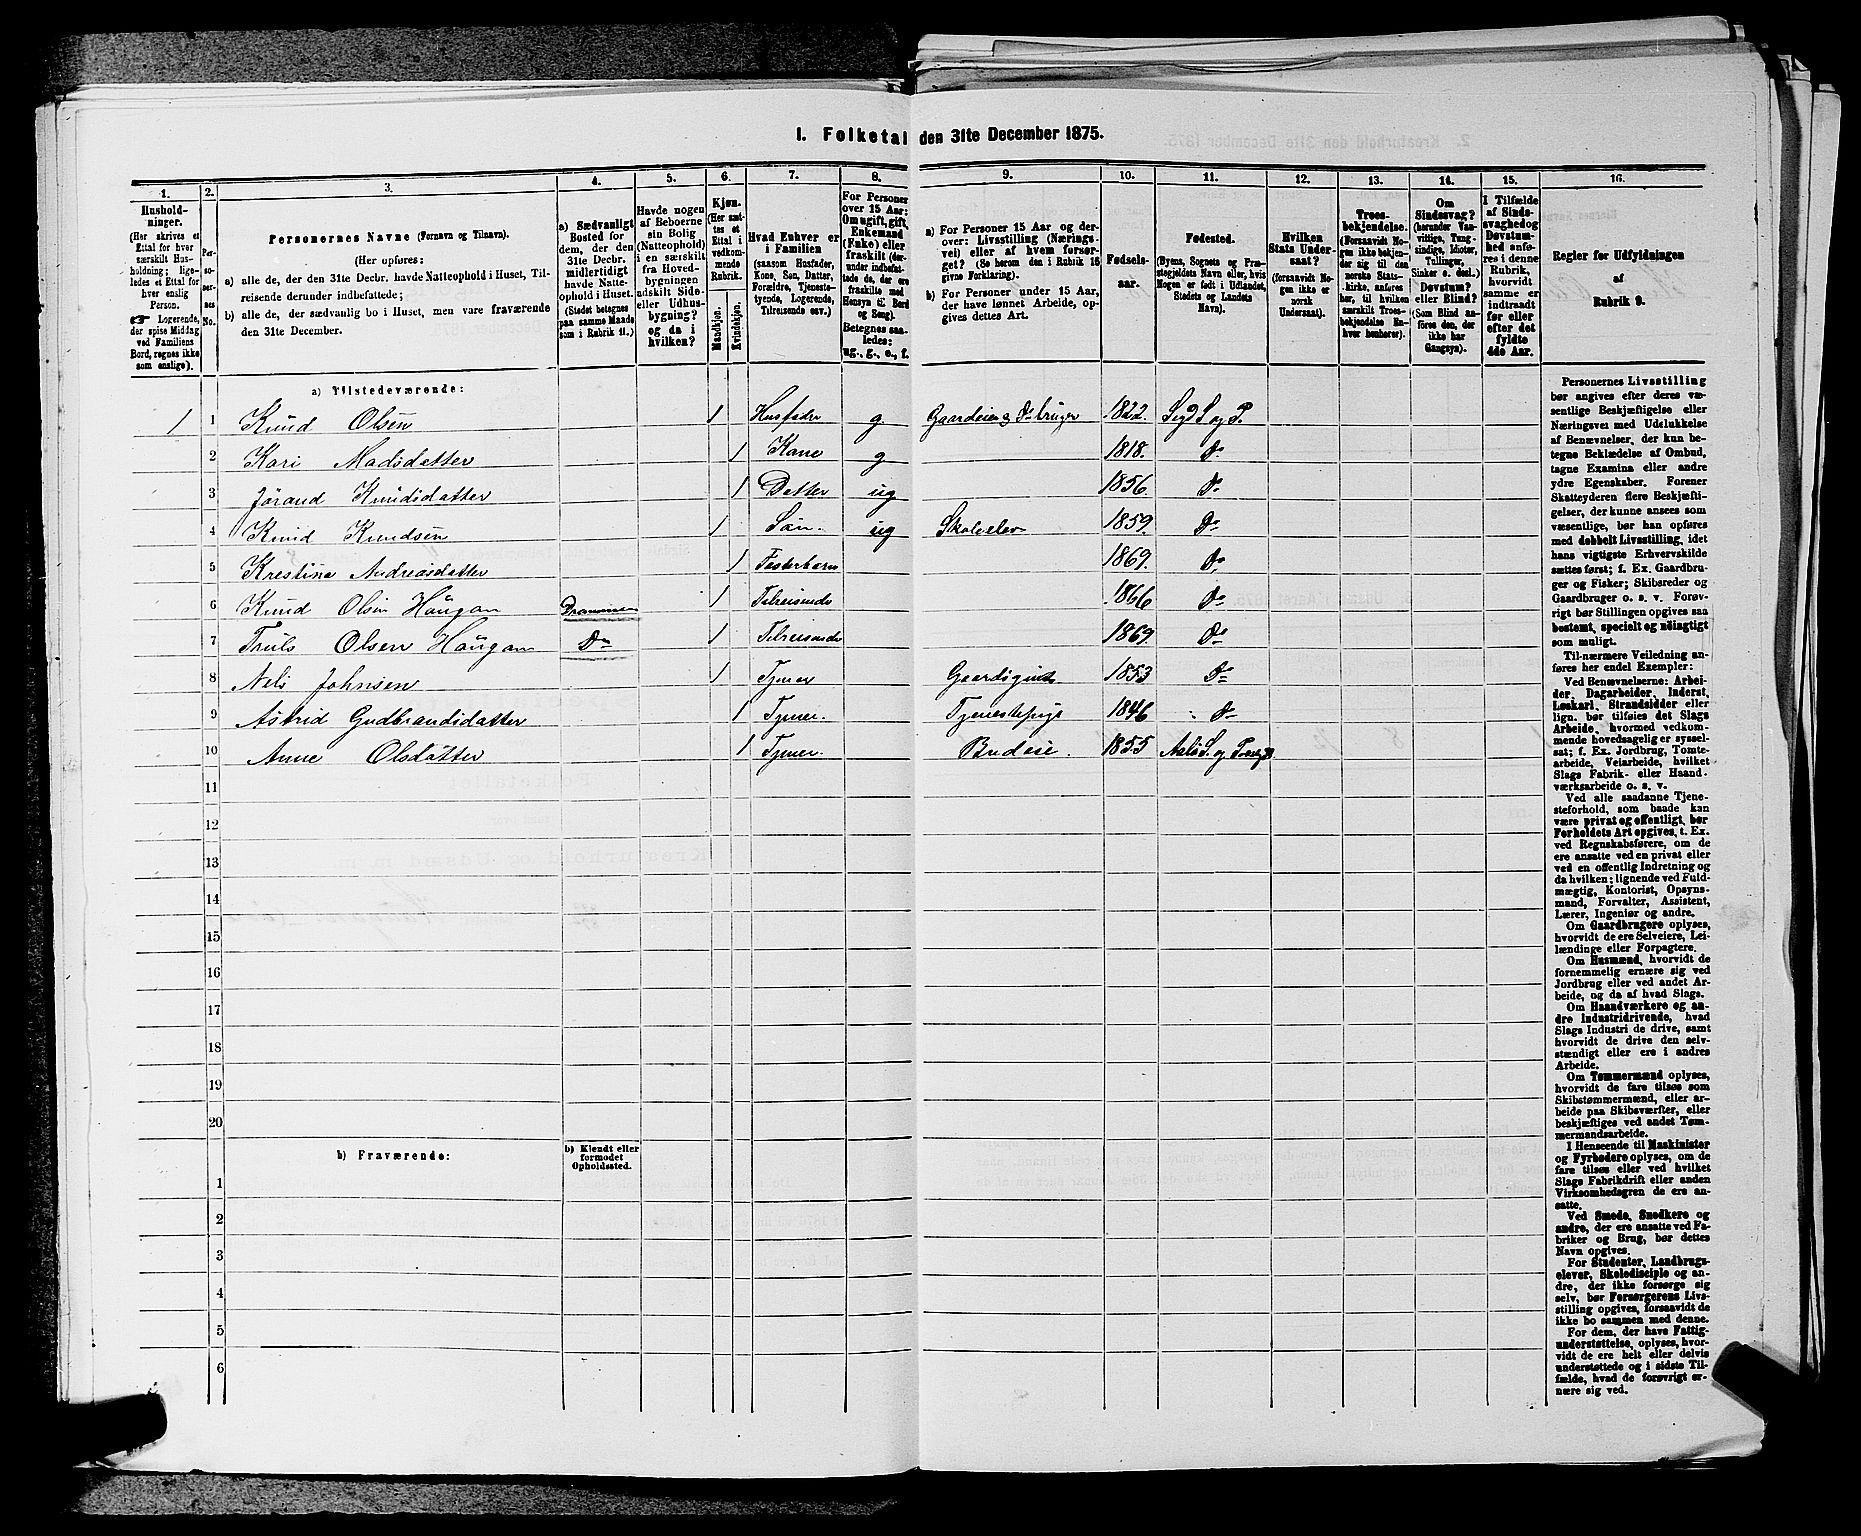 1. Folketal den 31te December 1875.
1. 2. 3. 4. 5. 6. 7. 8. 9. 10. 11. 12. 13. 14. 15. 16.
Husholdninger.
(Her skrives et
Ettal for hver
særskilt Husholdning;
ligeledes
et Ettal for
hver enslig
Person.
☞ Logerende,
der spise Middag
ved Familiens
Bord, regnes ikke
som enslige).
Personernes No.
Personernes Navne (Fornavn og Tilnavn).
(Her opføres:
a) alle de, der den 31te Decbr. havde Natteophold i Huset, Tilreisende
derunder indbefattede;
b) alle de, der sædvanlig bo i Huset, men vare fraværende
den 31te December.
a) Sædvanligt
Bosted for
dem, der den
31te Decbr.
midlertidigt
havde Natteophold
i Huset.
(Stedet betegnes
paa samme Maade
som i Rubrik 11.)
Havde nogen
af Beboerne
sin Bolig
(Natteophold)
i en særskilt
fra Hovedbygningen
adskilt Side- eller
Udhusbygning?
og da i
hvilken?
Kjøn.
(Her sættes
et
Ettal i
vedkommende
Rubrik.
Mandkjøn.
Kvindekjøn.
Hvad Enhver er
i Familien
(saasom Husfader,
Kone, Søn, Datter,
Forældre, Tjenestetyende,
Logerende,
Tilreisende osv.)
For Personer
over 15 Aar:
Om ugift, gift,
Enkemand
(Enke) eller
fraskilt (derunder
indbefattede
de, der ere
fraskilte med
Hensyn til Bord
og Seng).
Betegnes saaledes:
ug., g., e., f.
a) For Personer 15 Aar og derover:
Livsstilling (Næringsvei)
eller af hvem forsørget?
(Se herom den i Rubrik 16
givne Forklaring).
b) For Personer under 15 Aar,
der have lønnet Arbeide, opgives
dettes Art.
Fødselsaar.
Fødested.
(Byens, Sognets og Præstegjeldets
Navn eller, hvis
Nogen er født i Udlandet,
Stedets og Landets
Navn).
Hvilken
Stats Undersaat?
(forsaavidt Nogen
ikke er
norsk
Undersaat).
Troesbekjendelse.
(Forsaavidt Nogen
ikke bekjender
sig til den
norske Statskirke,
anføres
her, til hvilken
særskilt Troesbekjendelse
Enhver
henhører).
Om
Sindssvag?
(herunder Vanvittige,
Tungsindige,
Idioter,
Tullinger,
Sinker o. desl.)
Døvstum?
eller Blind?
(Som Blind anføres
den, der
ikke har
Gangsyn).
I Tilfælde
af Sindssvaghed
og
Døvstumhed
anføres
i denne
Rubrik,
hvorvidt
samme er
indtraadt
før eller
efter det
fyldte
4de Aar.
Regler for Udfyldningen
af
Rubrik 9.
a) Tilstedeværende:
1 1 Knud Olsen 1 Husfader g. Gaardeier & Do bruger 1822. Sigd S og P.
2 Kari Madsdatter 1 Kone g 1818. Do
3 Jørand Knudsdatter 1 Datter ug 1856. Do
4 Knud Knudsen 1 Søn. ug Skoleelev 1859. Do
5 Krestine Andreasdatter 1 Fosterbarn 1869. Do
6 Knud Olsen Haugan Drammen 1 Tilreisende 1866 Do
7 Truls Olsen Haugan Do 1 Tilreisende 1869. Do
8 Nels Johnsen 1 Tjener Gaardsgut 1853 Do
9 Astrid Gudbrandsdatter 1 Tjener. Tjenestepige 1846 Do
10 Anne Olsdatter 1 Tjener. Budeie. 1855 Aals S. og
11
12
13
14
15
16
17
18
19
20
b) Fraværende:
b) Kjendt eller
formodet
Opholdssted.
1
2
3
4
5
6
Personernes Livsstilling
bør angives efter deres væsentlige
Beskjæftigelse eller
Næringsvei med Udelukkelse
af Benævnelser, der kun betegne
Bekladelse af Ombud,
tagne Examina eller andre
ydre Egenskaber. Forener
Skatteyderen flere Beskjæftigelser,
der kunne ansees som
væsentlige, bør han opføres
med dobbelt Livsstilling, idet
hans vigtigste Erhvervskilde
sættes først; f. Ex. Gaardbruger
og Fisker; Skibsreder og
Gaardbruger o. s. v. Forøvrigt
bør Stillingen opgives saa
bestemt, specielt og nöiagtigt
som muligt.
Til nærmere Veiledning anføres
her endel Exempler:
Ved Benævnelserne: Arbeider,
Dagarbeider, Inderst,
Løskarl, Strandsidder eller
lign. bør tilføies det Slags
Arbeide, hvormed vedkommende
hovedsagelig er sysselsat;
f. Ex. Jordbrug, Tomtearbeide,
Veiarbeide, hvilket
Slags Fabrik- eller Haandværksarbeide
o. s. v.
Ved alle saadanne Tjenesteforhold,
som baade kan
være privat og offentligt, bør
Forholdets Art opgives, t. Ex.
ved Regnskabsførere, om de
ere ansatte ved en privat eller
ved en offentlig Indretning og
da hvilken; lignende ved Fuldmægtig,
Kontorist, Opsynsmand,
Forvalter, Assistent,
Lærer, Ingeniør og andre.
Om Gaardbrugere oplyses,
hvorvidt de ere Selveiere, Leilændinge
eller Forpagtere.
Om Husmænd, hvorvidt de
fornemmelig ernære sig ved
Jordbrug eller ved andet Arbeide,
og da af hvad Slags.
Om Haandværkere og andre
Industridrivende, hvad
Slags Industri de drive, samt
hvorvidt de drive den selvstændigt
eller ere i andres
Arbeide.
Om Tømmermænd oplyses,
hvorvidt de fare tilsøs som
Skibstømmermænd, eller arbeide
paa Skibsværfter, eller
beskjæftiges ved andet Tømmermandsarbeide.
I Henseende til Maskinister
og Fyrbødere oplyses, om de
fare tilsøs eller ved hvilket
Slags Fabrikdrift eller anden
Virksomhedsgren de ere ansatte.
Ved Smede, Snedkere og
andre, der ere ansatte ved Fabriker
og Brug, bør dettes
Navn opgives.
For Studenter, Landbrugselever,
Skoledisciple og andre,
der ikke forsørge sig
selv, bør Forsørgerens Livsstilling
opgives, forsaavidt de
ikke bo sammen med denne.
For dem, der have Fattigunderstøttelse,
oplyses, hvorvidt
de ere helt eller delvis
understøttede og i sidste Tilfælde,
hvad de forøvrigt ernære
sig ved.